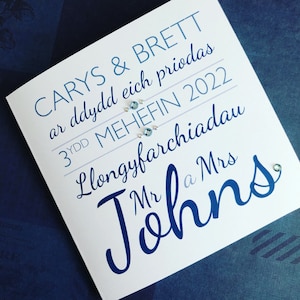 CARYS & BRETT
ar ddydd eich priodas
3YDD MEHEFIN 2022
Llongyfarchiadau
Mr a Mrs
Johns